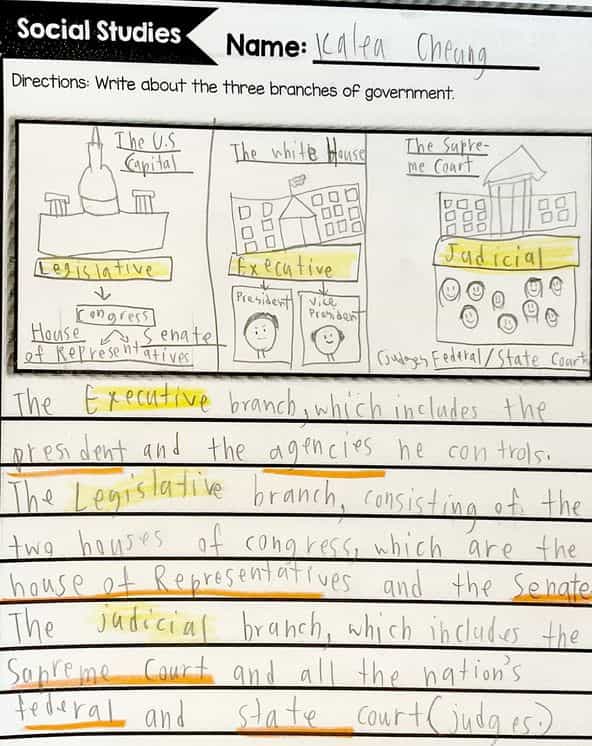 Social Studies
Name: Kalea Cheung
Directions: Write about the three branches of government.
The U.S
Capital
Legislative
Congress
House
of Representatives
Senate
The white House
Executive
President
Vice
President
The Supre-
me Court
Judicial
(judges Federal/State Court
The Executive branch, which includes the
president and the agencies he controls.
The Legislative branch, consisting of the
two houses of congress, which are the
house of Representatives and the Senate
The judicial branch, which includes the
Supreme Court and all the nation's
federal and state court (judges.)